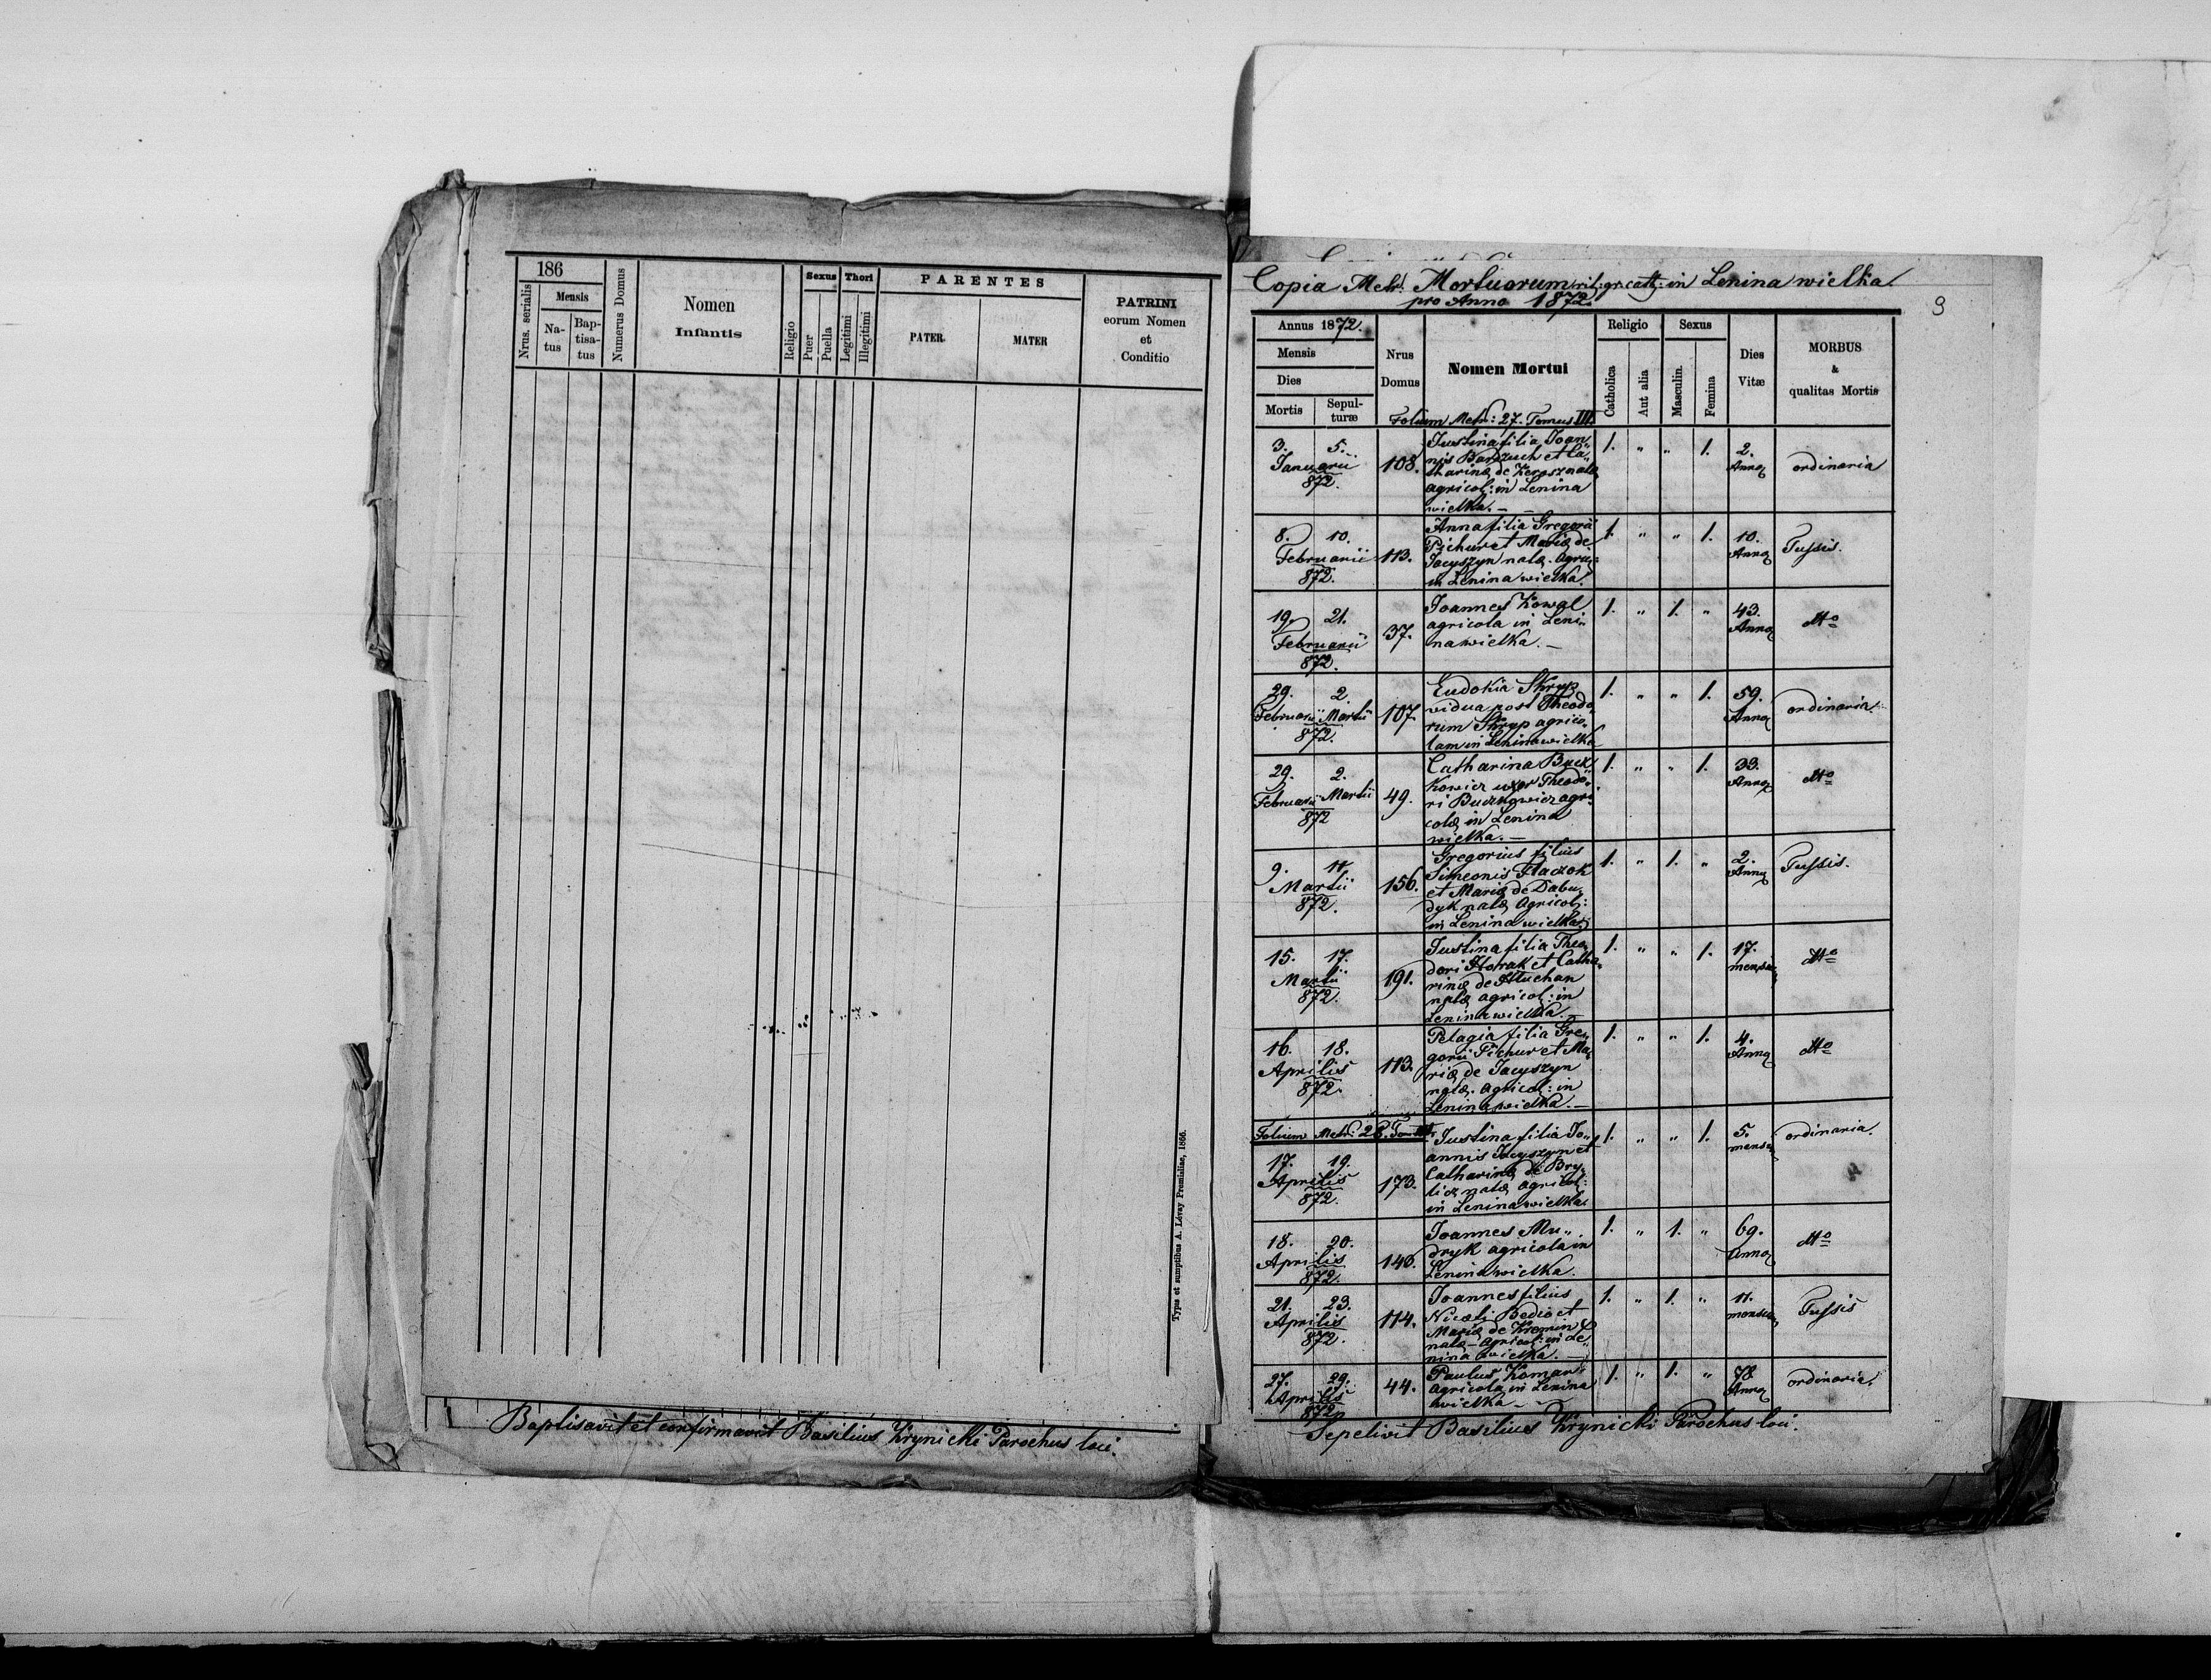 186
Nrus. serialis
Mensis
Na-
tus
Bap-
tisa-
tus
Numerus Domus
Nomen
Infantis
Religio
Sexus
Puer
Puella
Thori
Legitimi
Illegitimi
PARENTES
PATER
MATER
PATRINI
eorum Nomen
et
Conditio
Typis et sumptibus A. Lévay Premisliae, 1866.
Baptisavit et confirmavit Basilius Krynicki Parochus loci.
Copia Metr: Mortuorum rit: gr. cath: in Lenina wielka
pro Anno 1872.
9
Annus 1872.
Mensis
Dies
Mortis
Sepul-
turæ
Nrus
Domus
Nomen Mortui
Religio
Catholica
Aut alia
Sexus
Masculin.
Femina
Dies
Vitæ
MORBUS
&
qualitas Mortis
Folium Metr: 27. Tomus III.
3. 5. Januarii 872. 108.
Justina filia Joan„
nis Barzuch et Ca„
tharinæ de natæ
agricol: in Lenina
wielka.
1. „ „ 1. 2. Anno ordinaria
8. 10. Februarii 872. 113.
Anna filia Gregorii
Pichur et Mariæ de
Jacyszyn natæ. agric:
in Lenina wielka.
1. „ „ 1. 10. Anno Tussis.
19. 21. Februarii 872. 37.
Joannes Kowal
agricola in Leni„
na wielka.
1. „ 1. „ 43. Anno dtto
29. 2. Februarii Martii 872. 107
Eudokia Skryp
vidua post Theodo„
rum Skryp agrico„
lam in Lenina wielka
1. „ „ 1. 59. Anno ordinaria.
29. 2. Februarii Martii 872 49.
Catharina Bucz„
kowicz uxor Theodo„
ri Buczkowicz agri„
colæ in Lenina
wielka.
1. „ „ 1. 33. Anno dtto
9. 11. Martii 872. 156.
Gregorius filius
Simeonis Haczok
et Mariæ de Dabu„
dyk natæ agricol:
in Lenina wielka.
1. „ 1. „ 2. Anno Tussis.
15. 17. Martii 872. 191.
Justina filia Theo„
dori Horak et Catha„
rinæ de Hluchan
natæ agricol: in
Lenina wielka.
1. „ „ 1. 17. mensium dtto
16. 18. Aprilis 872. 113.
Pelagia filia Gre„
gorii Pichur et Ma„
riæ de Jacyszyn
natæ. agricol: in
Lenina wielka.
1. „ „ 1. 4. Anno dtto
Folium Metr: 28. Tom III.
17. 19. Aprilis 872. 173.
Justina filia Jo„
annis Jacyszyn et
Catharinæ de Bry„
licz natæ agricol:
in Lenina wielka.
1. „ „ 1. 5. mensium ordinaria.
18. 20. Aprilis 872. 140.
Joannes Mu„
dryk agricola in
Lenina wielka.
1. „ 1. „ 69. Anno dtto
21. 23. Aprilis 872. 114.
Joannes filius
Nicolai et
Mariæ de
natæ - agricol: in Le„
nina wielka.
1. „ 1. „ 11. mensium Tussis
27. 29. Aprilis 872 44.
Paulus Komar
agricola in Lenina
wielka
1. „ 1. „ 78. Anno ordinaria.
Sepelivit Basilius Krynicki Parochus loci.